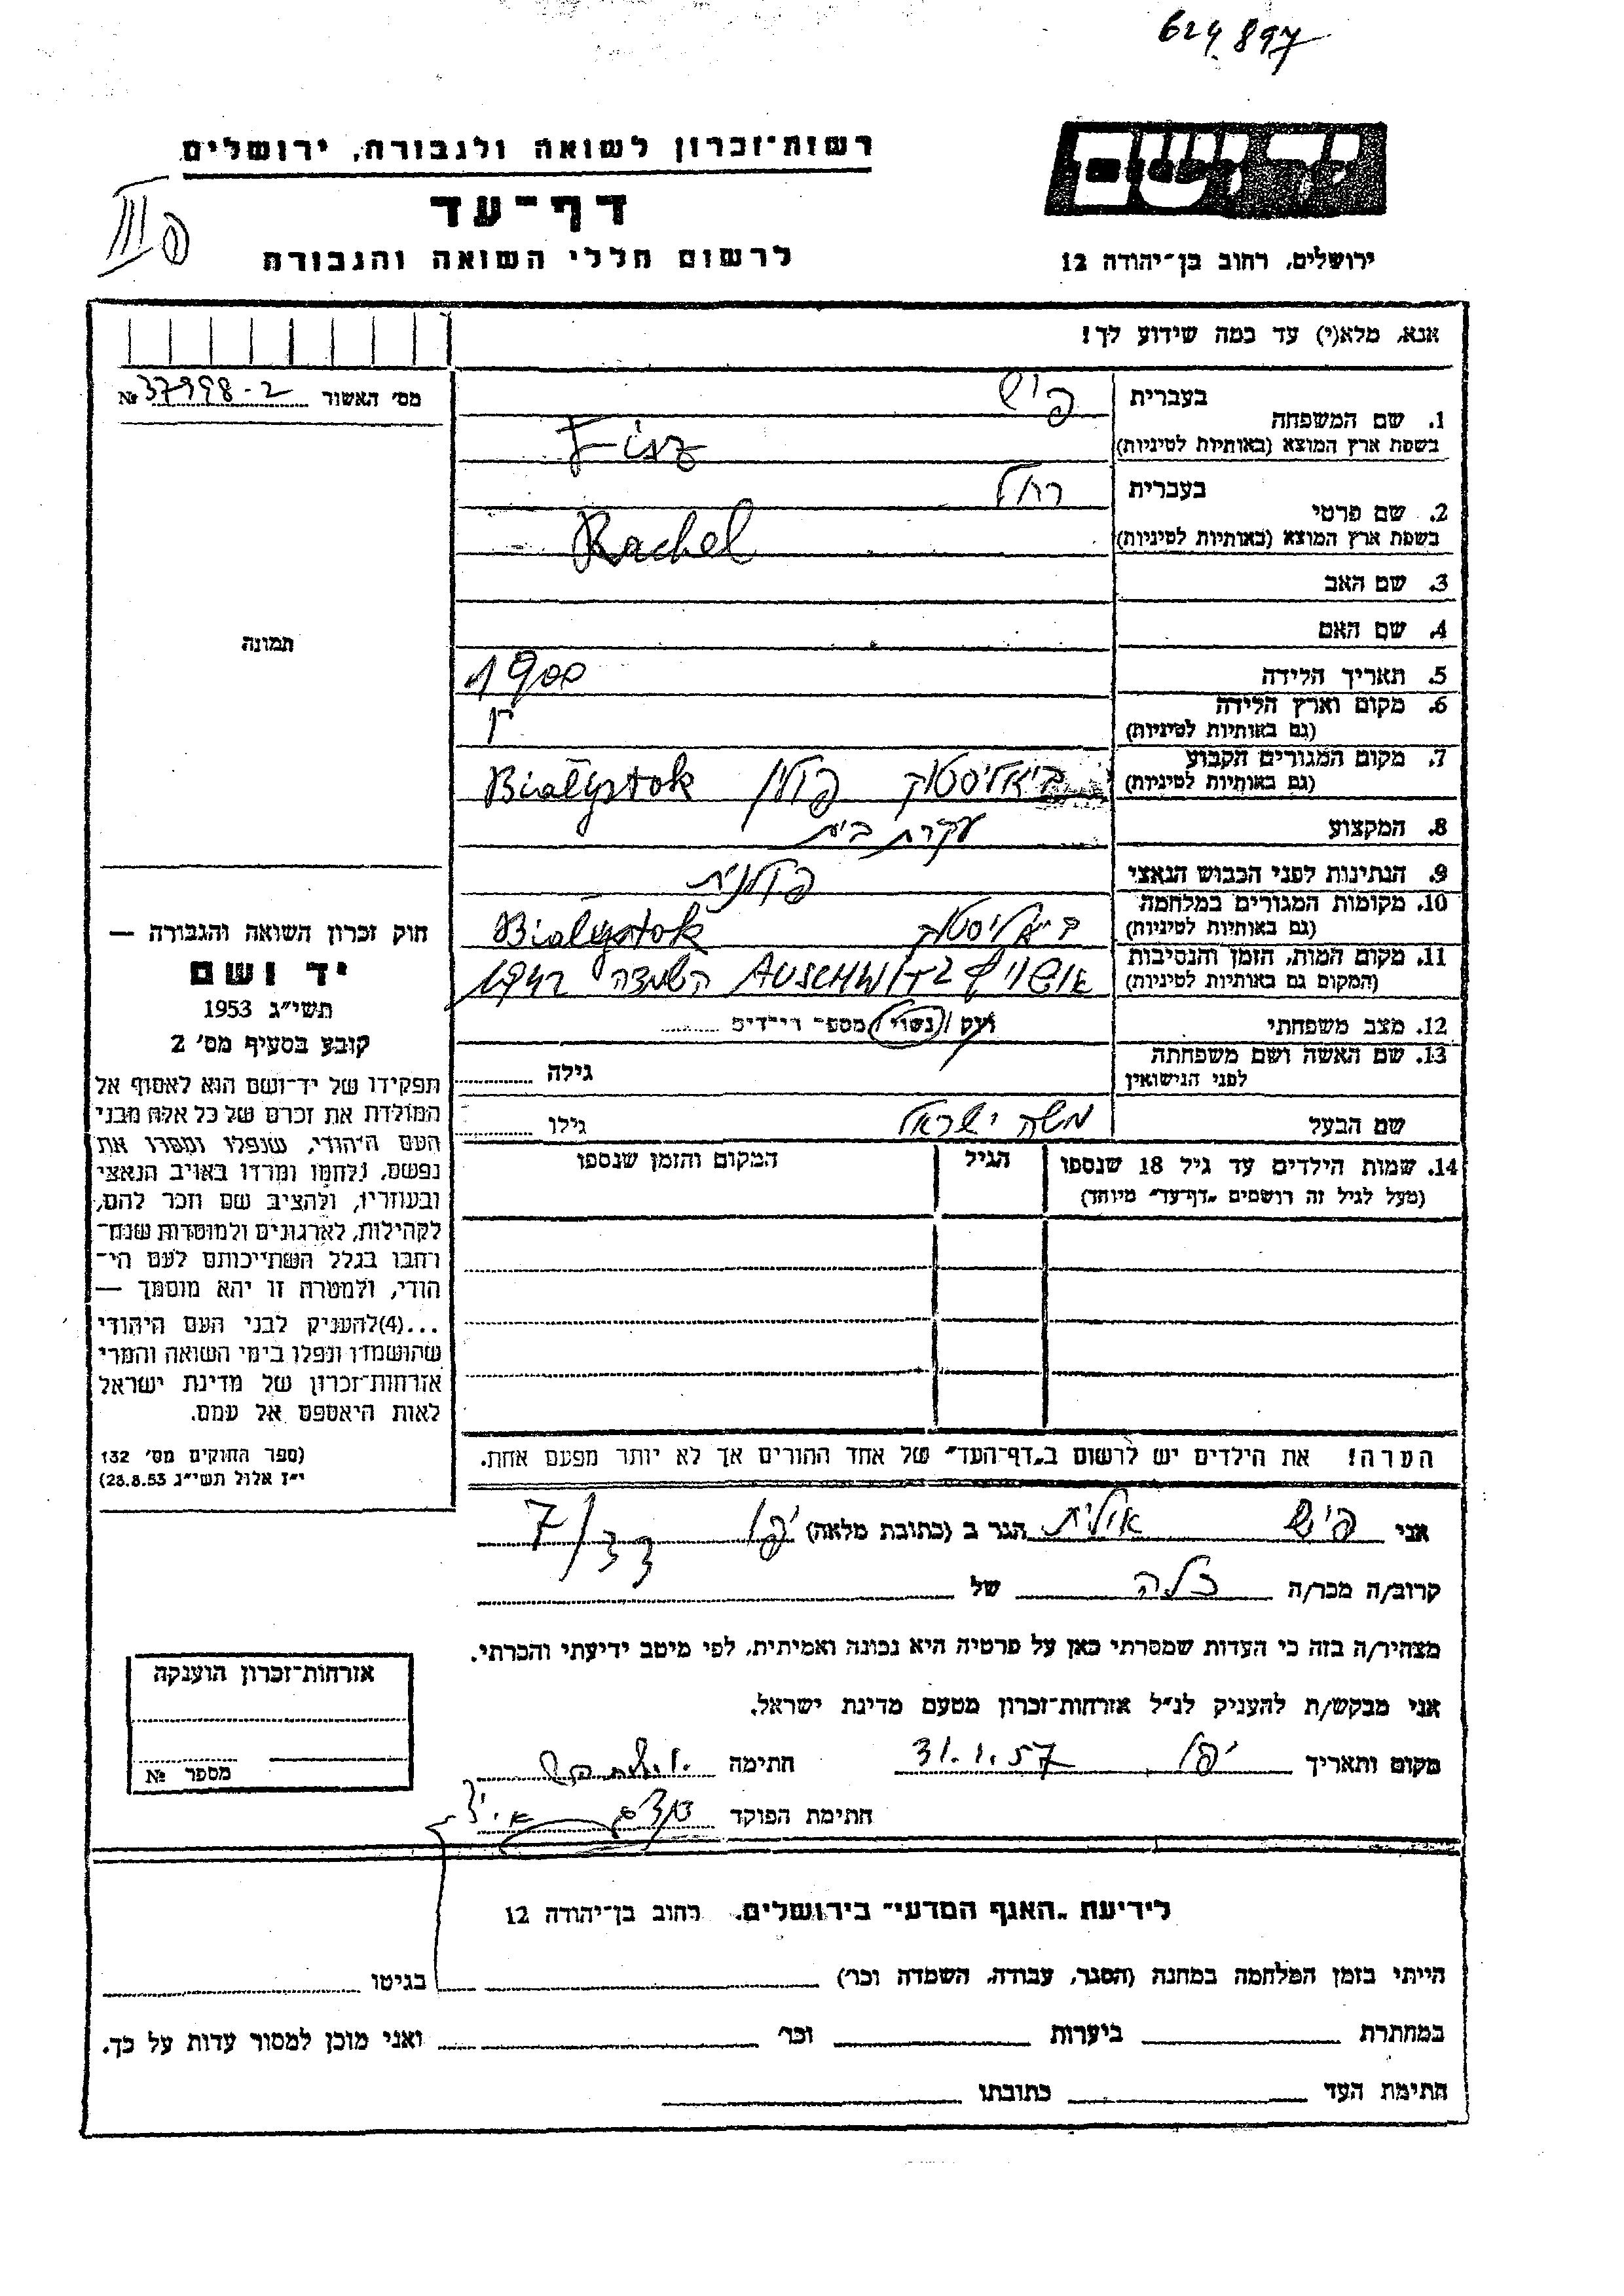 624897
יד ושם
ירושלים, רחוב בן־יהודה 12
רשות־זכרון לשואה ולגבורה, ירושלים
דף־עד
לרשום חללי השואה והגבורה
III
אנא, מלא(י) עד כמה שידוע לך!
מס׳ האשור 37998-2 №
תמונה
1. שם המשפחה
בעברית פיש
בשפת ארץ המוצא (באותיות לטיניות) Fisz
2. שם פרטי
בעברית רחל
בשפת ארץ המוצא (באותיות לטיניות) Rachel
3. שם האב
4. שם האם
5. תאריך הלידה 1900
6. מקום וארץ הלידה
(גם באותיות לטיניות)
7. מקום המגורים הקבוע ביאליסטוק פולין Białystok
(גם באותיות לטיניות)
8. המקצוע עקרת בית
9. הנתינות לפני הכבוש הנאצי פולנית
10. מקומות המגורים במלחמה ביאליסטוק Bialystok
(גם באותיות לטיניות)
11. מקום המות, הזמן והנסיבות אושויץ AUSCHWITZ השמדה
(המקום גם באותיות לטיניות)
12. מצב משפחתי רוק / נשוי / מספר הילדים
13. שם האשה ושם משפחתה
לפני הנישואין גילה
שם הבעל משה ישראל גילו
14. שמות הילדים עד גיל 18 שנספו הגיל המקום והזמן שנספו
(מעל לגיל זה רושמים „דף־עד״ מיוחד)
הערה! את הילדים יש לרשום ב„דף־העד״ של אחד ההורים אך לא יותר מפעם אחת.
חוק זכרון השואה והגבורה —
יד ושם
תשי״ג 1953
קובע בסעיף מס׳ 2
תפקידו של יד־ושם הוא לאסוף אל
המולדת את זכרם של כל אלה מבני
העם היהודי, שנפלו ומסרו את
נפשם, נלחמו ומרדו באויב הנאצי
ובעוזריו, ולהציב שם וזכר להם,
לקהילות, לארגונים ולמוסדות שנח־
רבו בגלל השתייכותם לעם הי־
הודי, ולמטרה זו יהא מוסמך —
...(4)להעניק לבני העם היהודי
שהושמדו ונפלו בימי השואה והמרי
אזרחות־זכרון של מדינת ישראל
לאות היאספם אל עמם.
(ספר החוקים מס׳ 132
י״ז אלול תשי״ג 28.8.53)
אני פיש אילית הגר ב (כתובת מלאה) יפו 7/33
קרוב/ה מכר/ה כלה של
מצהיר/ה בזה כי העדות שמסרתי כאן על פרטיה היא נכונה ואמיתית, לפי מיטב ידיעתי והכרתי.
אני מבקש/ת להעניק לנ״ל אזרחות־זכרון מטעם מדינת ישראל.
מקום ותאריך יפו 31.1.57 חתימה
חתימת הפוקד
אזרחות־זכרון הוענקה
מספר №
לידיעת „האגף המדעי״ בירושלים, רחוב בן־יהודה 12
הייתי בזמן המלחמה במחנה (הסגר, עבודה, השמדה וכו׳) בגיטו
במחתרת ביערות וכו׳ ואני מוכן למסור עדות על כך.
חתימת העד כתובתו